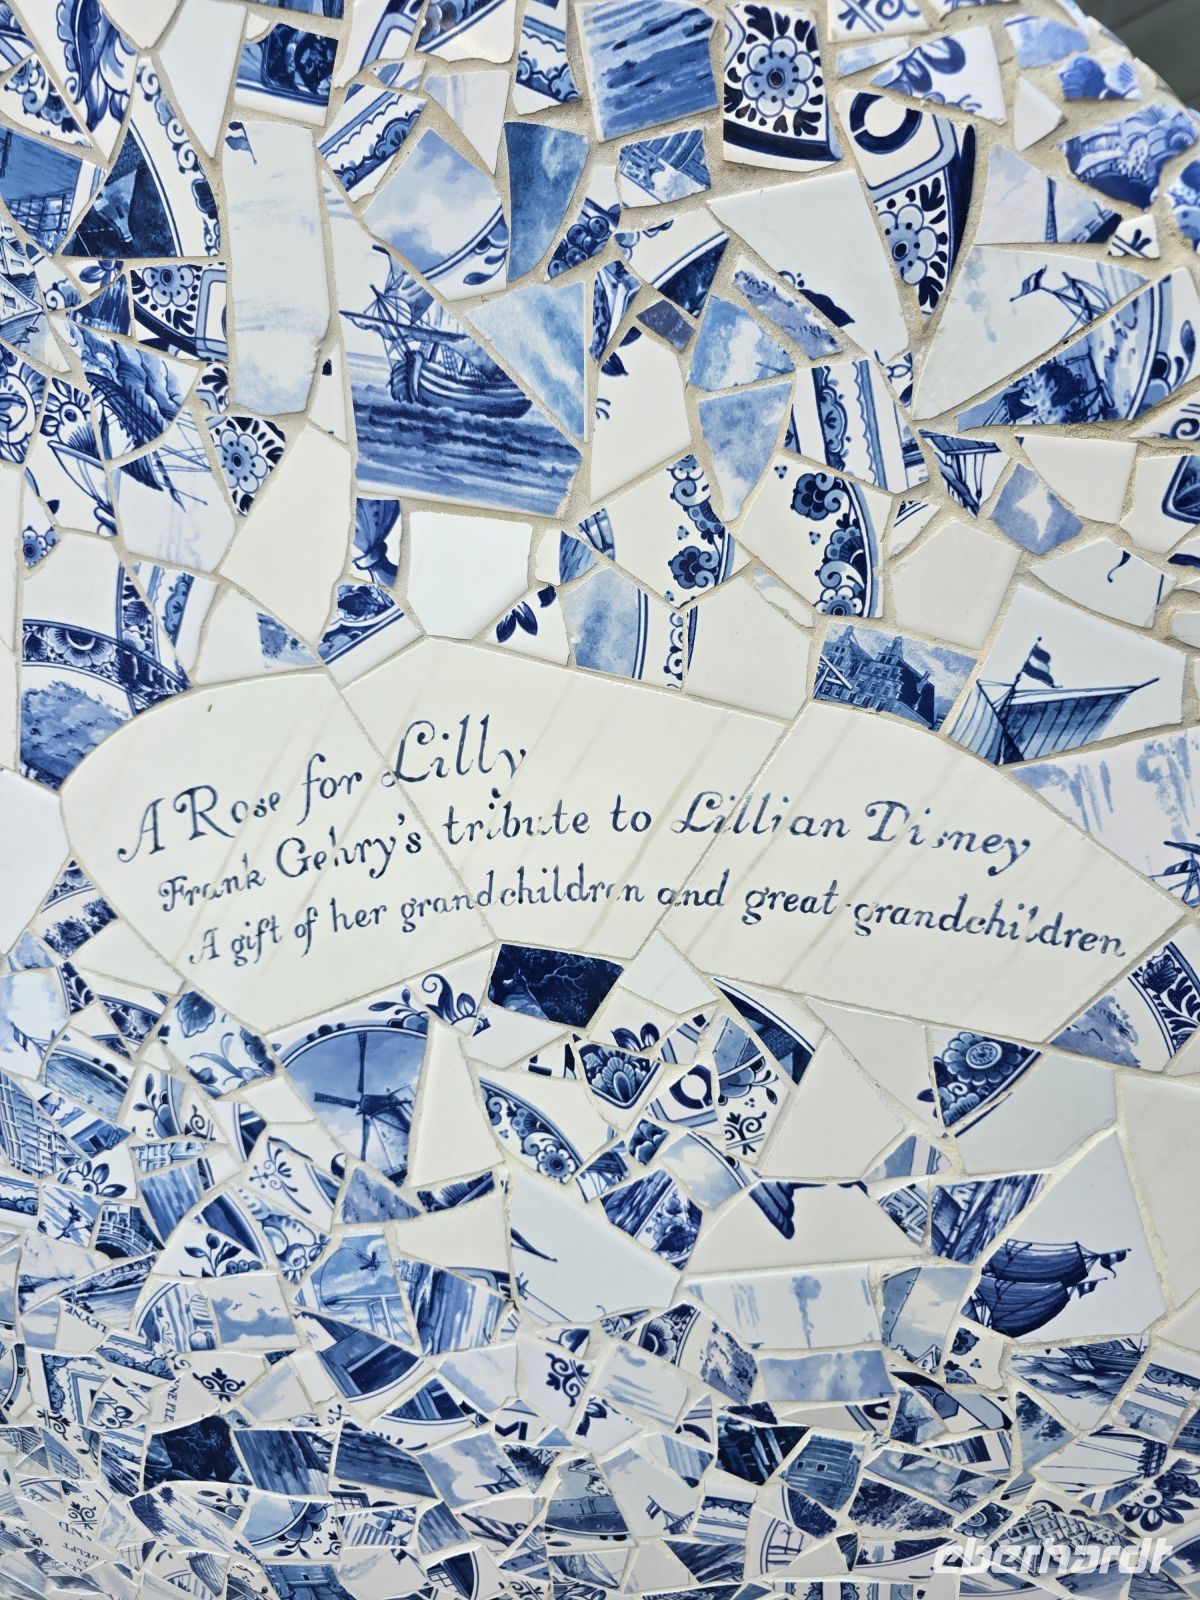 A Rose for Lilly
Frank Gehry's tribute to Lillian Disney
A gift of her grandchildren and great-grandchildren
LEYNE
DELFT
eberhardt